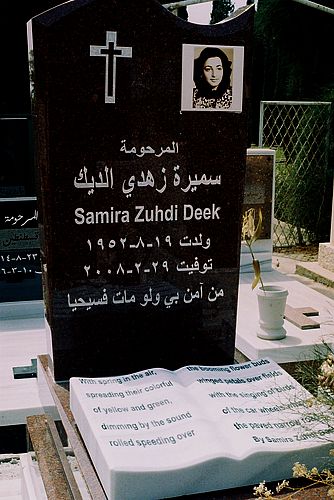 المرحومة
سميرة زهدي الديك
Samira Zuhdi Deek
ولدت ١٩-٨-١٩٥٢
توفيت ٢٩-٢-٢٠٠٨
من آمن بي ولو مات فسيحيا
المرحومة
With spring in the air,
spreading their colorful
of yellow and green,
dimming by the sound
rolled speeding over
the booming flower buds
winged petals over fields
with the singing of birds
of the car wheels
the paved narrow
By Samira Zuhdi